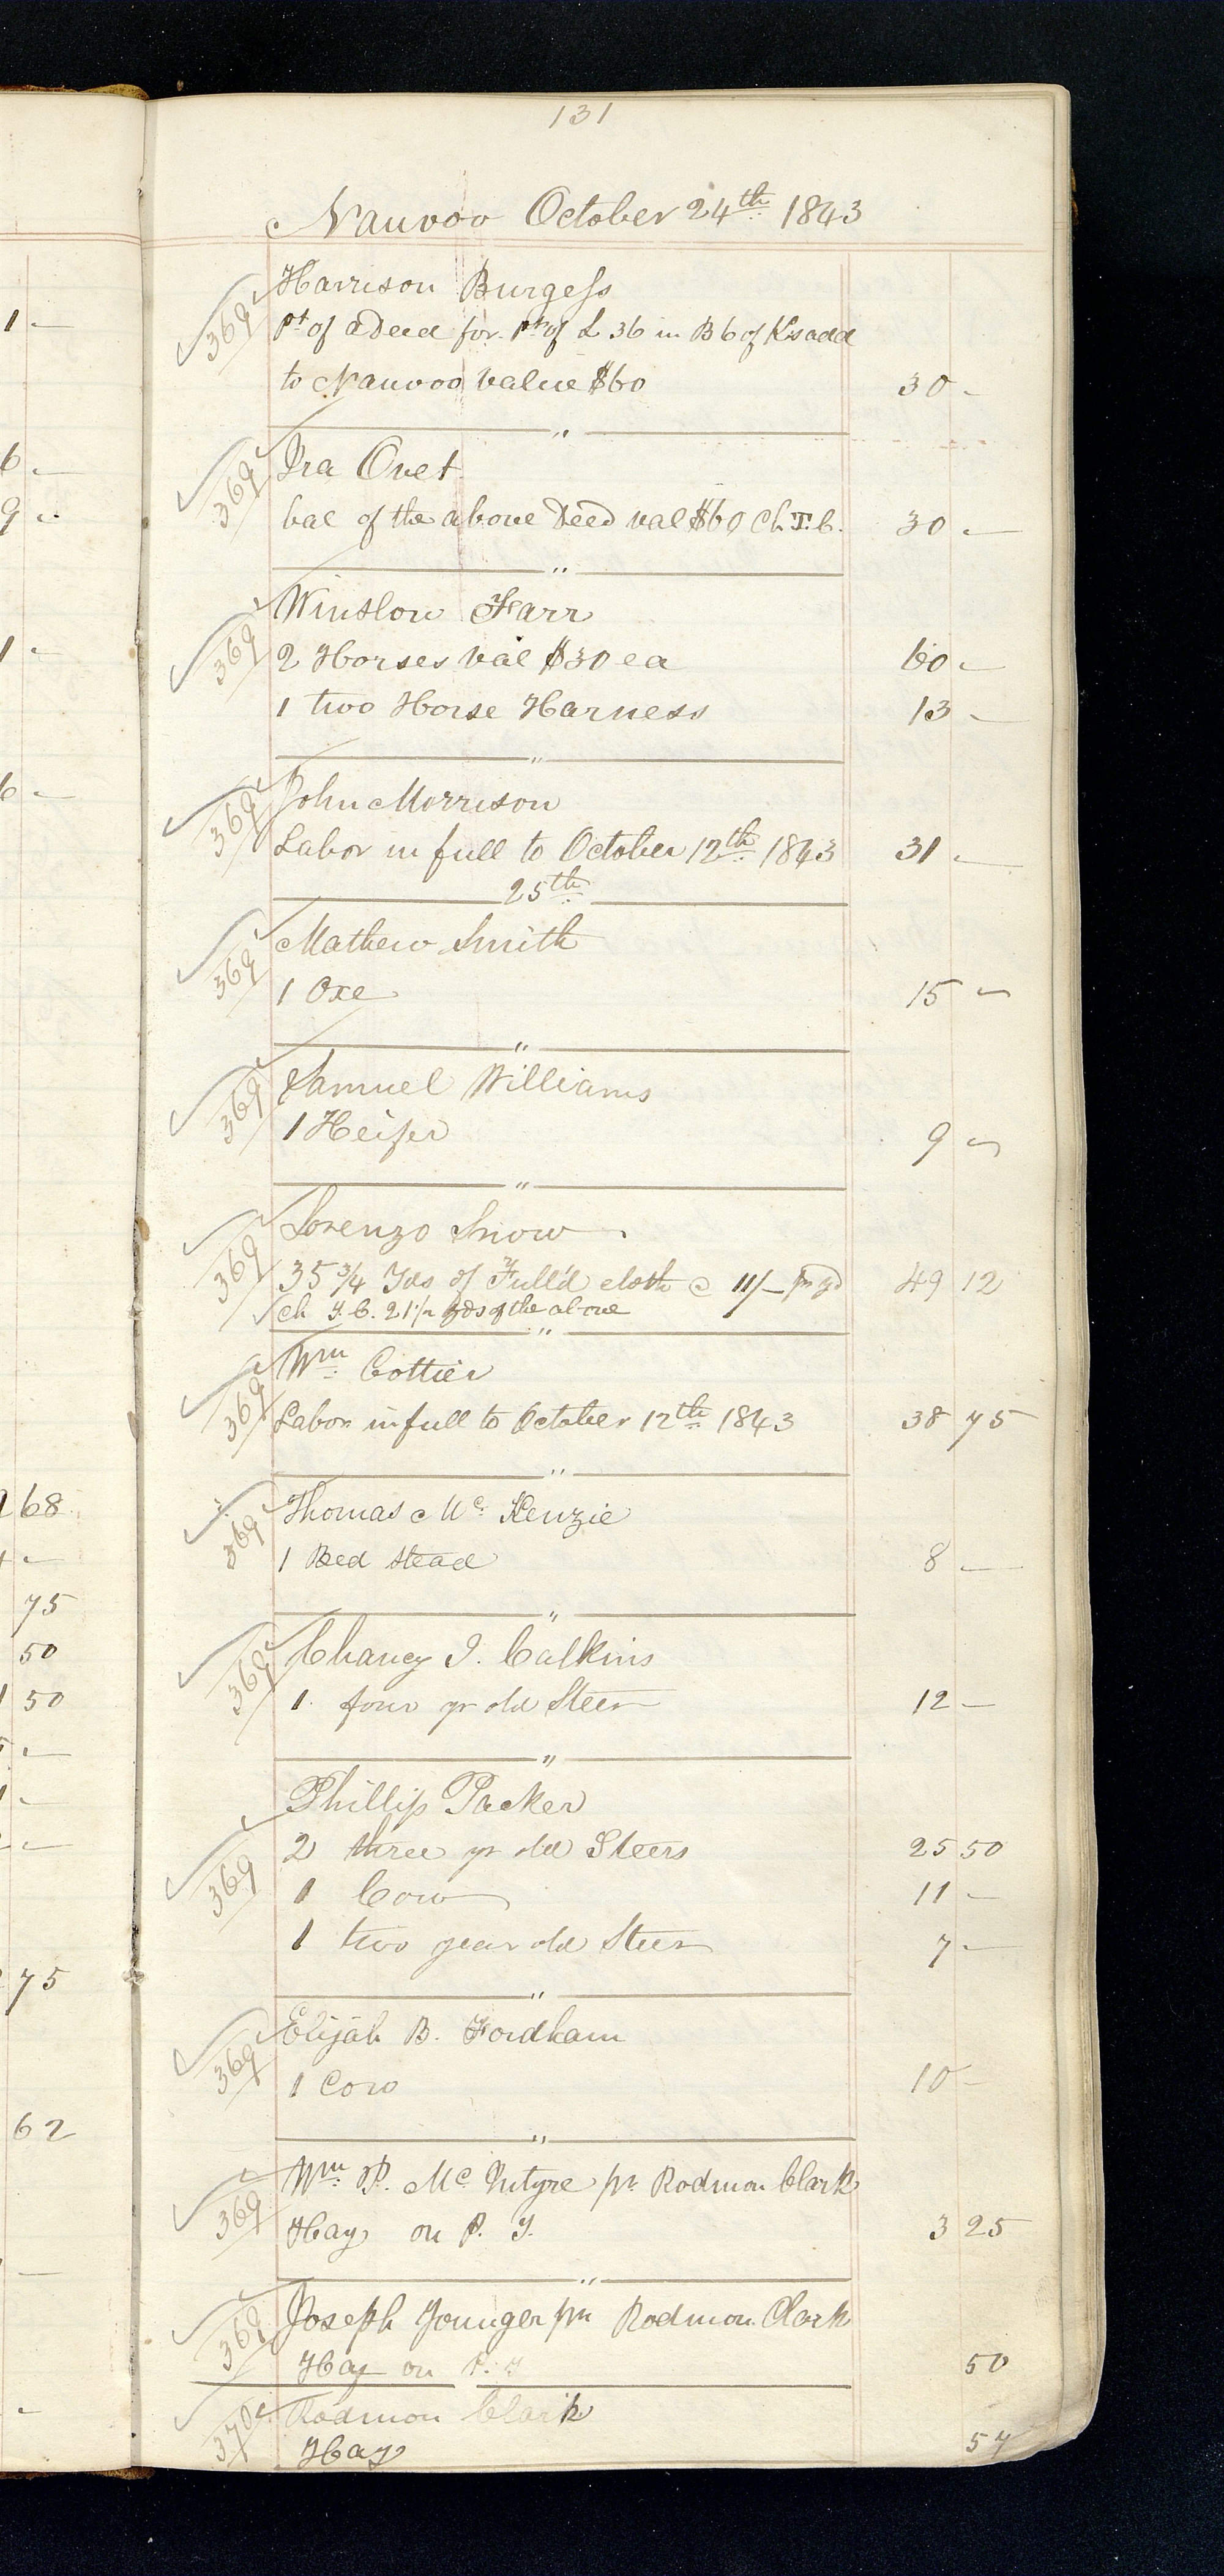 131
Nauvoo October 24th 1843
369 Harrison Burgess
pt of a Deed for pt of L 36 in B 6 of K's add
to Nauvoo value $60 30 -
"
369 Ira Ovet
bal of the above Deed val $60 Ch. T. C. 30 -
"
369 Winslow Farr
2 Horses val $30 ea 60 -
1 two Horse Harness 13 -
"
369 John Morrison
Labor in full to October 12th 1843 31 -
25th
369 Mathew Smith
1 Oxe 15 -
"
369 Samuel Williams
1 Heifer 9 -
"
369 Lorenzo Snow
35 3/4 Yds of Full'd cloth @ 11/- pr yd 49 12
Ch T. C. 21 1/2 yds of the above
"
369 Wm Cottier
Labor in full to October 12th 1843 38 75
"
369 Thomas Mc Kenzie
1 Bed stead 8 -
"
369 Chancy I. Calkins
1 four yr old Steer 12 -
"
Phillip Packer
369 2 three yr old Steers 25 50
1 Cow 11 -
1 two year old Steer 7 -
"
369 Elijah B. Fordham
1 Cow 10 -
"
369 Wm P. Mc Intyre pr Rodmon Clark
Hay on P. T. 3 25
"
369 Joseph Younger pr Rodmon Clark
Hay on P. T 50
370 Rodmon Clark
Hay 57
1 -
6 -
9 -
1 -
6 -
68
75
50
50
75
62